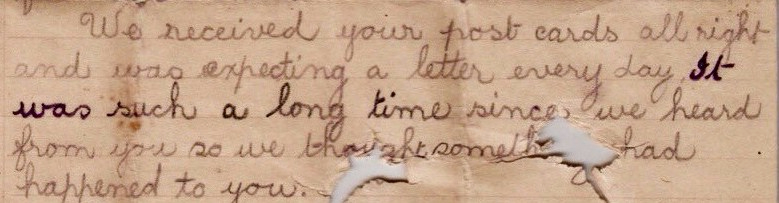 We received your post cards all right
and was expecting a letter every day It
was such a long time since we heard
from you so we thought someth had
happened to you.